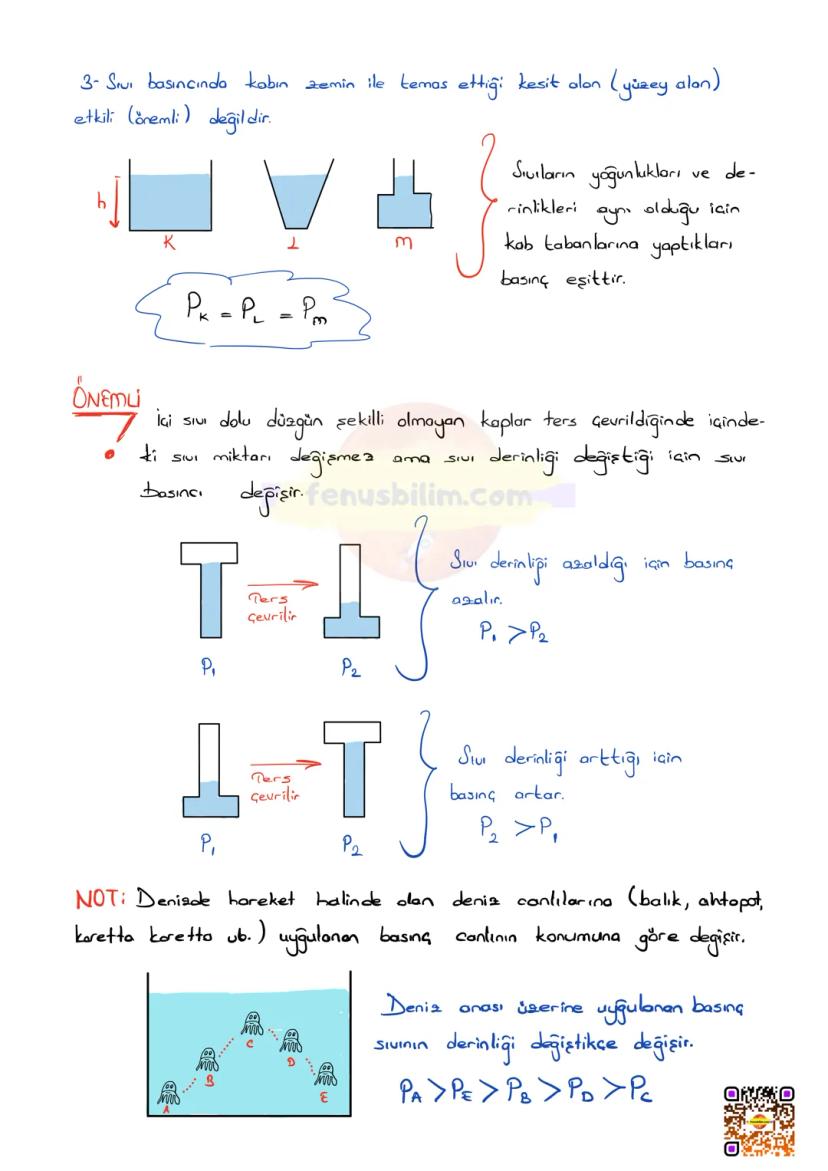 3- Sıvı basıncında kabın zemin ile temas ettiği kesit alan (yüzey alan)
etkili (önemli) değildir.
h
K
L
M
Sıvıların yoğunlukları ve de-
rinlikleri aynı olduğu için
kab tabanlarına yaptıkları
basınç eşittir.
PK = PL = Pm
ÖNEMLİ
!
İçi sıvı dolu düzgün şekilli olmayan kaplar ters çevrildiğinde içinde-
ki sıvı miktarı değişmez ama sıvı derinliği değiştiği için sıvı
basıncı değişir.
fenusbilim.com
Ters
çevrilir
P1
P2
Sıvı derinliği azaldığı için basınç
azalır.
P1 > P2
Ters
çevrilir
P1
P2
Sıvı derinliği arttığı için
basınç artar.
P2 > P1
NOT: Denizde hareket halinde olan deniz canlılarına (balık, ahtapot,
karetta karetta vb.) uygulanan basınç canlının konumuna göre değişir.
A
B
C
D
E
Deniz anası üzerine uygulanan basınç
sıvının derinliği değiştikçe değişir.
PA > PE > PB > PD > PC